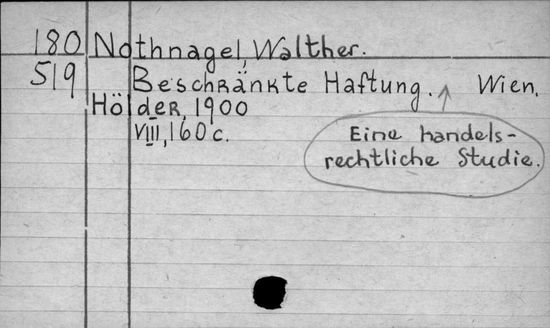 180 Nothnagel, Walther.
519 Beschränkte Haftung. Wien,
Hölder, 1900
VIII, 160 c.
Eine handels-
rechtliche Studie.